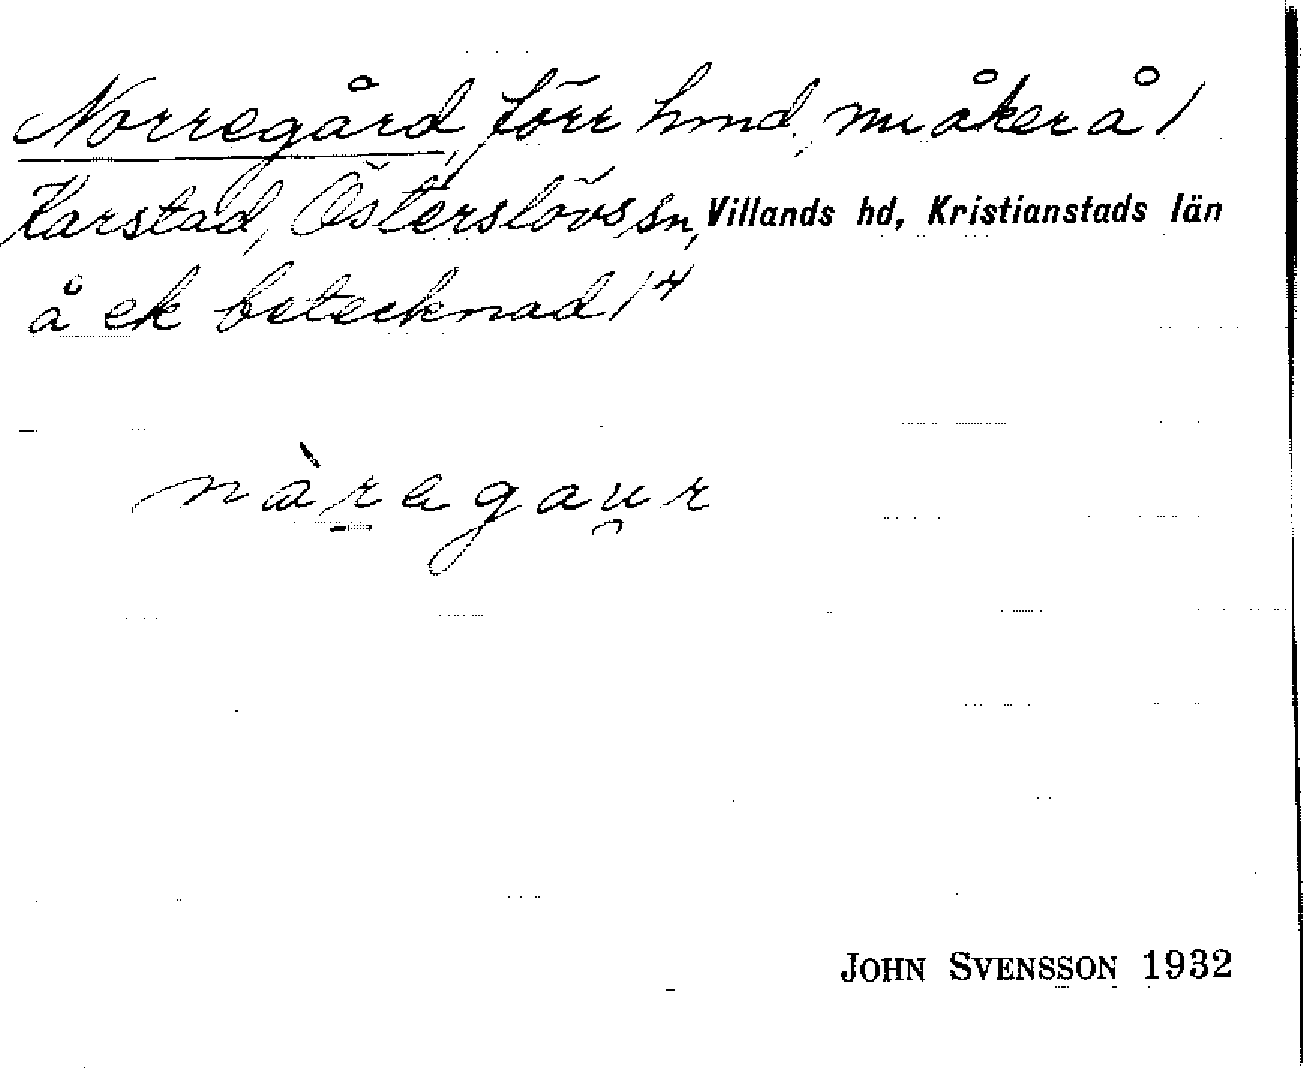 Norregård, förr hmd, nu åker å 1
Karstad, Österslövs sn, Villands hd, Kristianstads län
å ek betecknad 14
nàragau̯r
JOHN SVENSSON 1932